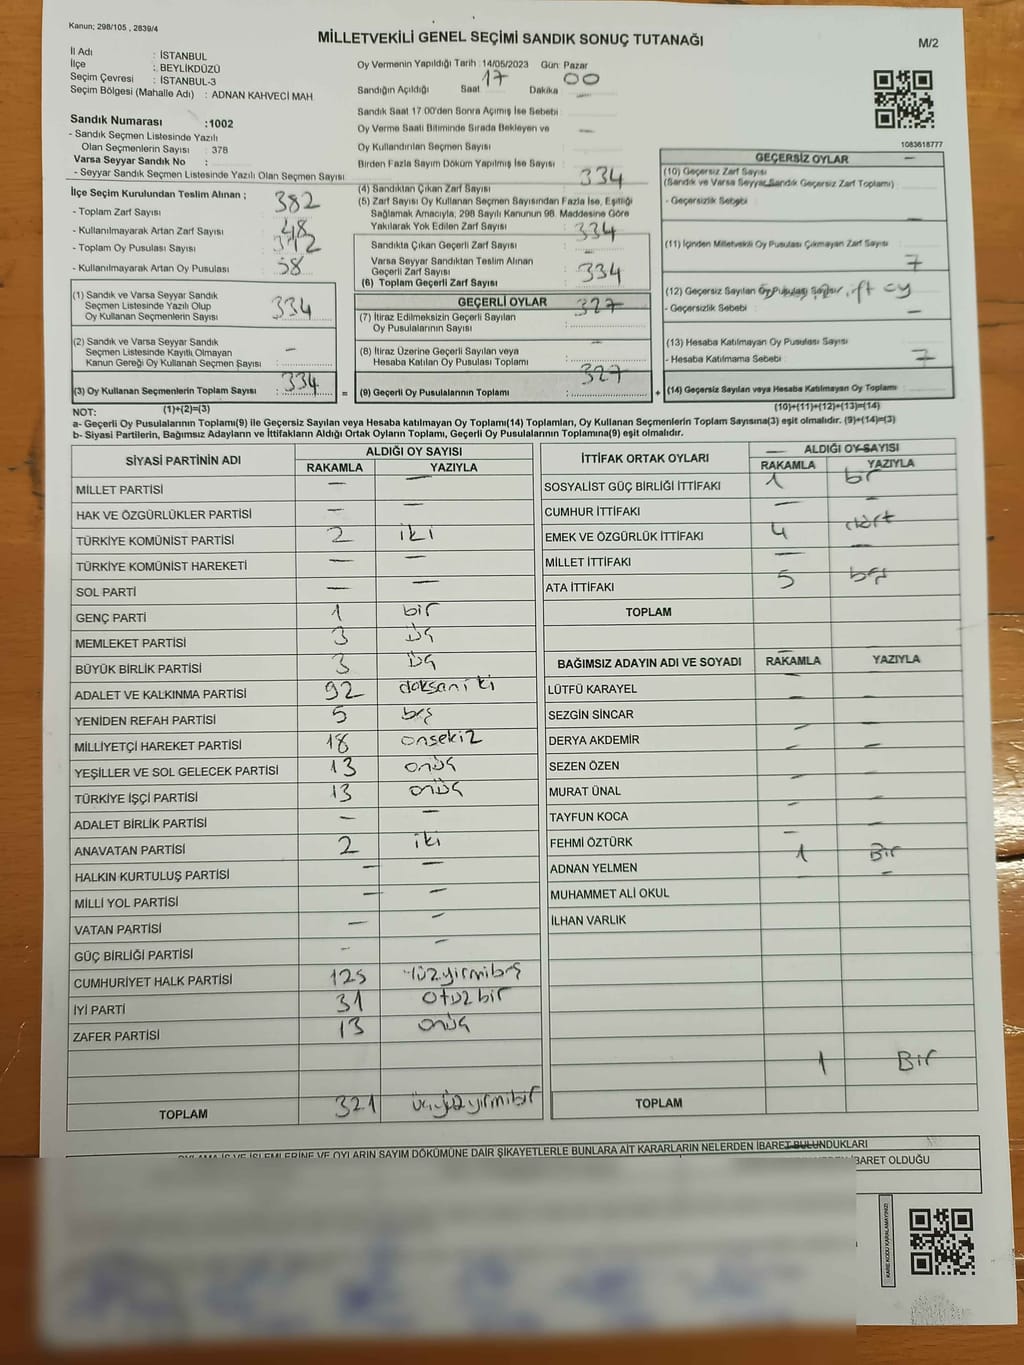 Kanun; 298/105 , 2839/4
MİLLETVEKİLİ GENEL SEÇİMİ SANDIK SONUÇ TUTANAĞI
M/2
İl Adı : İSTANBUL
İlçe : BEYLİKDÜZÜ
Seçim Çevresi : İSTANBUL-3
Seçim Bölgesi (Mahalle Adı) : ADNAN KAHVECİ MAH
Oy Vermenin Yapıldığı Tarih : 14/05/2023 Gün: Pazar
Sandığın Açıldığı Saat 17 Dakika 00
Sandık Saat 17:00'den Sonra Açılmış İse Sebebi :
Oy Verme Saati Bitiminde Sırada Bekleyen ve —
Oy Kullandırılan Seçmen Sayısı :
Birden Fazla Sayım Döküm Yapılmış İse Sayısı : —
Sandık Numarası :1002
- Sandık Seçmen Listesinde Yazılı
Olan Seçmenlerin Sayısı : 378
Varsa Seyyar Sandık No :
- Seyyar Sandık Seçmen Listesinde Yazılı Olan Seçmen Sayısı :
1083618777
İlçe Seçim Kurulundan Teslim Alınan ;
- Toplam Zarf Sayısı : 382
- Kullanılmayarak Artan Zarf Sayısı : 48
- Toplam Oy Pusulası Sayısı : 392
- Kullanılmayarak Artan Oy Pusulası : 58
(1) Sandık ve Varsa Seyyar Sandık
Seçmen Listesinde Yazılı Olup
Oy Kullanan Seçmenlerin Sayısı : 334
(2) Sandık ve Varsa Seyyar Sandık
Seçmen Listesinde Kayıtlı Olmayan
Kanun Gereği Oy Kullanan Seçmen Sayısı : —
(3) Oy Kullanan Seçmenlerin Toplam Sayısı : 334 =
(1)+(2)=(3)
(4) Sandıktan Çıkan Zarf Sayısı : 334
(5) Zarf Sayısı Oy Kullanan Seçmen Sayısından Fazla İse, Eşitliği
Sağlamak Amacıyla; 298 Sayılı Kanunun 98. Maddesine Göre
Yakılarak Yok Edilen Zarf Sayısı :
Sandıkta Çıkan Geçerli Zarf Sayısı : 334
Varsa Seyyar Sandıktan Teslim Alınan —
Geçerli Zarf Sayısı
(6) Toplam Geçerli Zarf Sayısı : 334
GEÇERLİ OYLAR
(7) İtiraz Edilmeksizin Geçerli Sayılan 327
Oy Pusulalarının Sayısı :
(8) İtiraz Üzerine Geçerli Sayılan veya —
Hesaba Katılan Oy Pusulası Toplamı :
(9) Geçerli Oy Pusulalarının Toplamı : 327 +
GEÇERSİZ OYLAR
(10) Geçersiz Zarf Sayısı —
(Sandık ve Varsa Seyyar Sandık Geçersiz Zarf Toplamı) :
- Geçersizlik Sebebi :
(11) İçinden Milletvekili Oy Pusulası Çıkmayan Zarf Sayısı : —
(12) Geçersiz Sayılan Oy Pusulası Sayısı : 7
- Geçersizlik Sebebi :
(13) Hesaba Katılmayan Oy Pusulası Sayısı : —
- Hesaba Katılmama Sebebi :
(14) Geçersiz Sayılan veya Hesaba Katılmayan Oy Toplamı : 7
(10)+(11)+(12)+(13)=(14)
NOT:
a- Geçerli Oy Pusulalarının Toplamı(9) ile Geçersiz Sayılan veya Hesaba katılmayan Oy Toplamı(14) Toplamları, Oy Kullanan Seçmenlerin Toplam Sayısına(3) eşit olmalıdır. (9)+(14)=(3)
b- Siyasi Partilerin, Bağımsız Adayların ve İttifakların Aldığı Ortak Oyların Toplamı, Geçerli Oy Pusulalarının Toplamına(9) eşit olmalıdır.
SİYASİ PARTİNİN ADI ALDIĞI OY SAYISI
RAKAMLA YAZIYLA
MİLLET PARTİSİ — —
HAK VE ÖZGÜRLÜKLER PARTİSİ — —
TÜRKİYE KOMÜNİST PARTİSİ 2 iki
TÜRKİYE KOMÜNİST HAREKETİ — —
SOL PARTİ — —
GENÇ PARTİ 1 bir
MEMLEKET PARTİSİ 3 üç
BÜYÜK BİRLİK PARTİSİ 3 üç
ADALET VE KALKINMA PARTİSİ 92 doksaniki
YENİDEN REFAH PARTİSİ 5 beş
MİLLİYETÇİ HAREKET PARTİSİ 18 onsekiz
YEŞİLLER VE SOL GELECEK PARTİSİ 13 onüç
TÜRKİYE İŞÇİ PARTİSİ 13 onüç
ADALET BİRLİK PARTİSİ — —
ANAVATAN PARTİSİ 2 iki
HALKIN KURTULUŞ PARTİSİ — —
MİLLİ YOL PARTİSİ — —
VATAN PARTİSİ — —
GÜÇ BİRLİĞİ PARTİSİ — —
CUMHURİYET HALK PARTİSİ 125 Yüzyirmibeş
İYİ PARTİ 31 otuzbir
ZAFER PARTİSİ 13 onüç
TOPLAM 321 üçyüzyirmibir
İTTİFAK ORTAK OYLARI ALDIĞI OY SAYISI
RAKAMLA YAZIYLA
SOSYALİST GÜÇ BİRLİĞİ İTTİFAKI — 
CUMHUR İTTİFAKI 1 bir
EMEK VE ÖZGÜRLÜK İTTİFAKI — —
MİLLET İTTİFAKI 4 dört
ATA İTTİFAKI — —
TOPLAM 5 beş
BAĞIMSIZ ADAYIN ADI VE SOYADI RAKAMLA YAZIYLA
LÜTFÜ KARAYEL — —
SEZGİN SİNCAR — —
DERYA AKDEMİR — —
SEZEN ÖZEN — —
MURAT ÜNAL — —
TAYFUN KOCA — —
FEHMİ ÖZTÜRK — —
ADNAN YELMEN 1 Bir
MUHAMMET ALİ OKUL —
İLHAN VARLIK
TOPLAM 1 Bir
OYLAMA İŞ VE İŞLEMLERİNE VE OYLARIN SAYIM DÖKÜMÜNE DAİR ŞİKAYETLERLE BUNLARA AİT KARARLARIN NELERDEN İBARET BULUNDUKLARI
İBARET OLDUĞU
KARE KODU KARALAMAYINIZ!